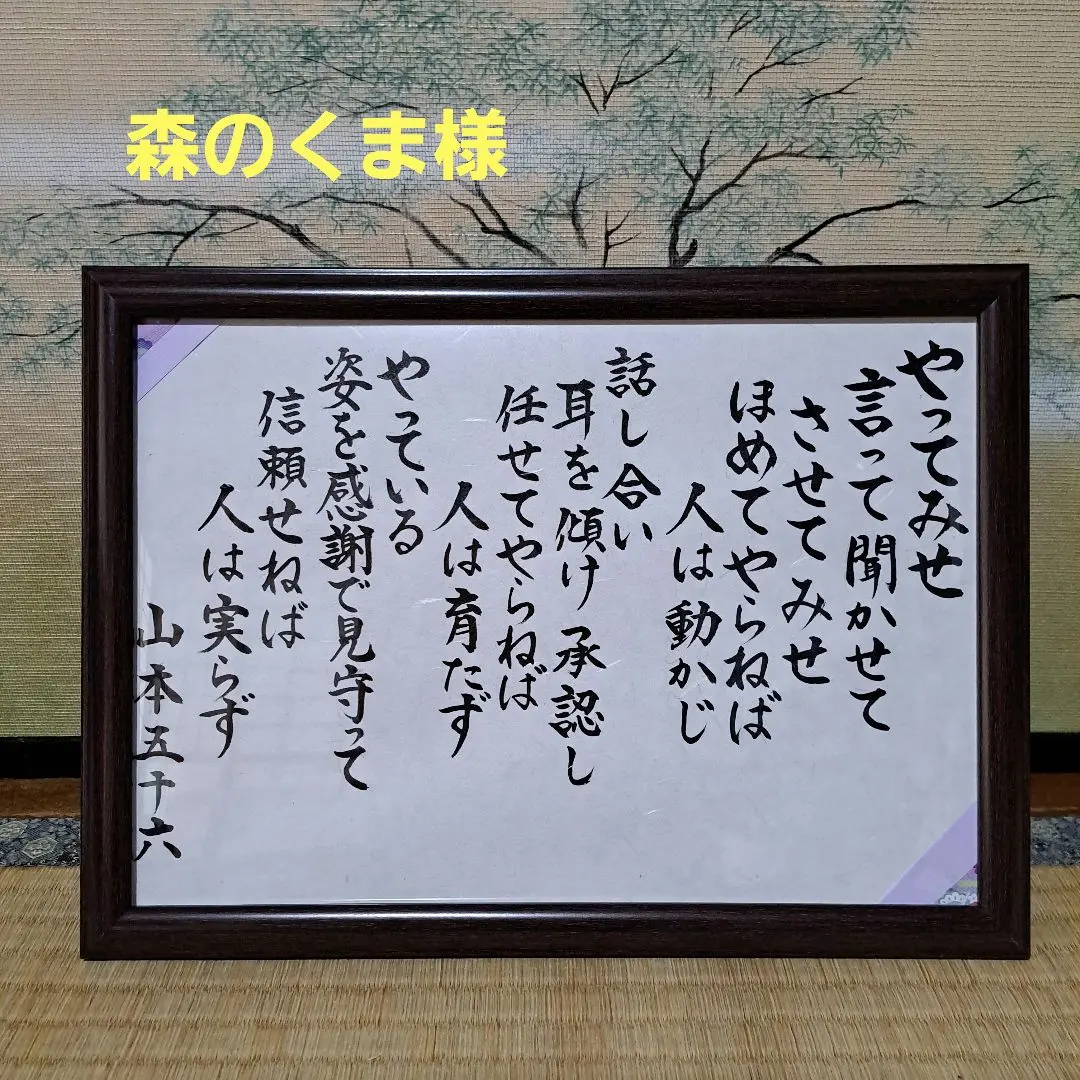 森のくま様
やってみせ
言って聞かせて
させてみせ
ほめてやらねば
人は動かじ
話し合い
耳を傾け承認し
任せてやらねば
人は育たず
やっている
姿を感謝で見守って
信頼せねば
人は実らず
山本五十六